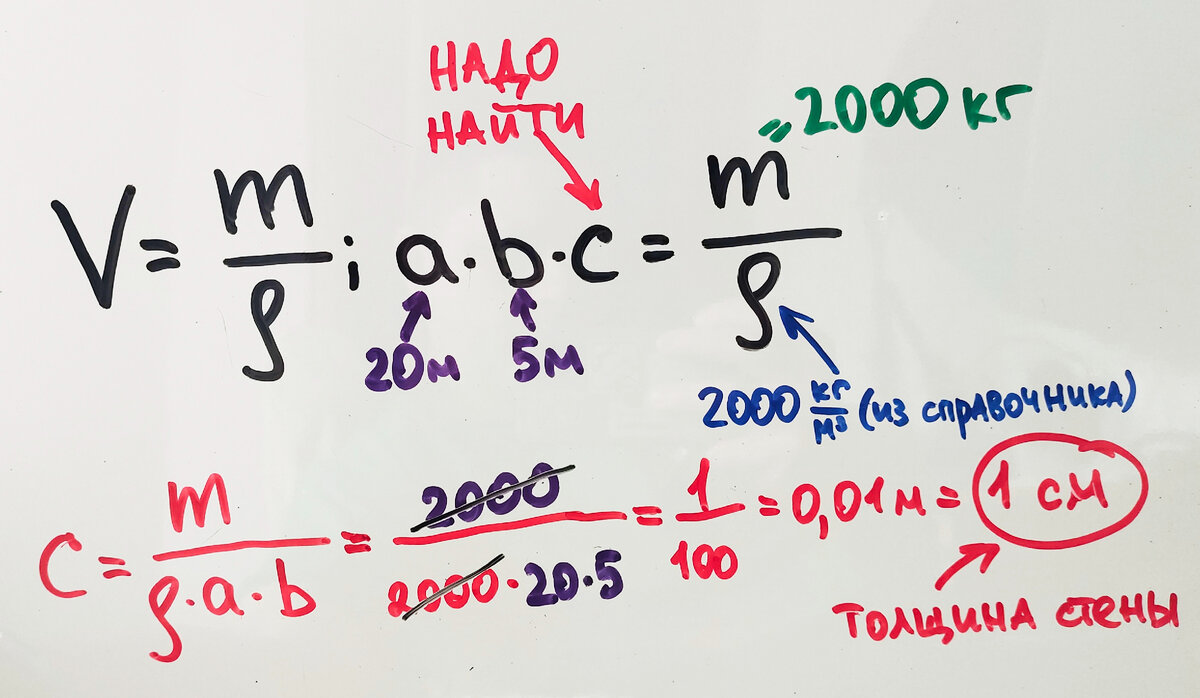 НАДО
НАЙТИ
= 2000 кг
V = m/ρ ; a · b · c = m/ρ
20м 5м
2000 кг/м³ (из справочника)
c = m/(ρ · a · b) = 2000/(2000 · 20 · 5) = 1/100 = 0,01 м = 1 см
толщина стены